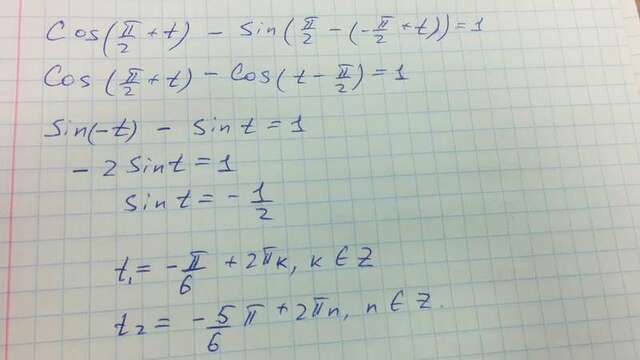 Cos(π/2 + t) - Sin(π/2 - (-π/2 + t)) = 1
Cos(π/2 + t) - Cos(t - π/2) = 1
Sin(-t) - Sin t = 1
- 2 Sin t = 1
Sin t = - 1/2
t₁ = - π/6 + 2πk, k ∈ Z
t₂ = - 5/6 π + 2πn, n ∈ Z.